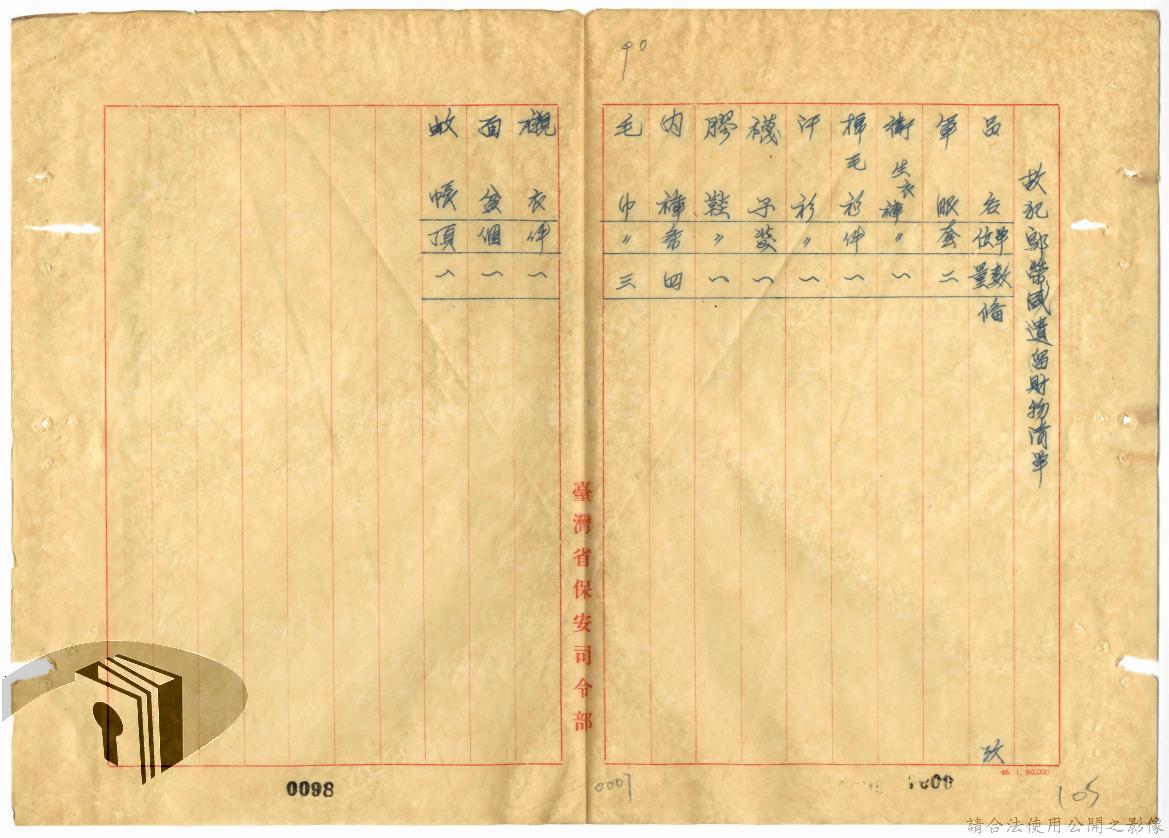 90
故犯鄔榮國遺留財物清單
品名 單位 數量 備攷
軍服 套 二
衛生衣褲 〃 一
棉毛衫 件 一
汗衫 〃 一
襪子 雙 一
膠鞋 〃 一
內褲 条 四
毛巾 〃 三
臺灣省保安司令部
襯衣 件 一
面盆 個 一
蚊帳 頂 一
46. 1. 50,000
0098
0007
105
請合法使用公開之影像